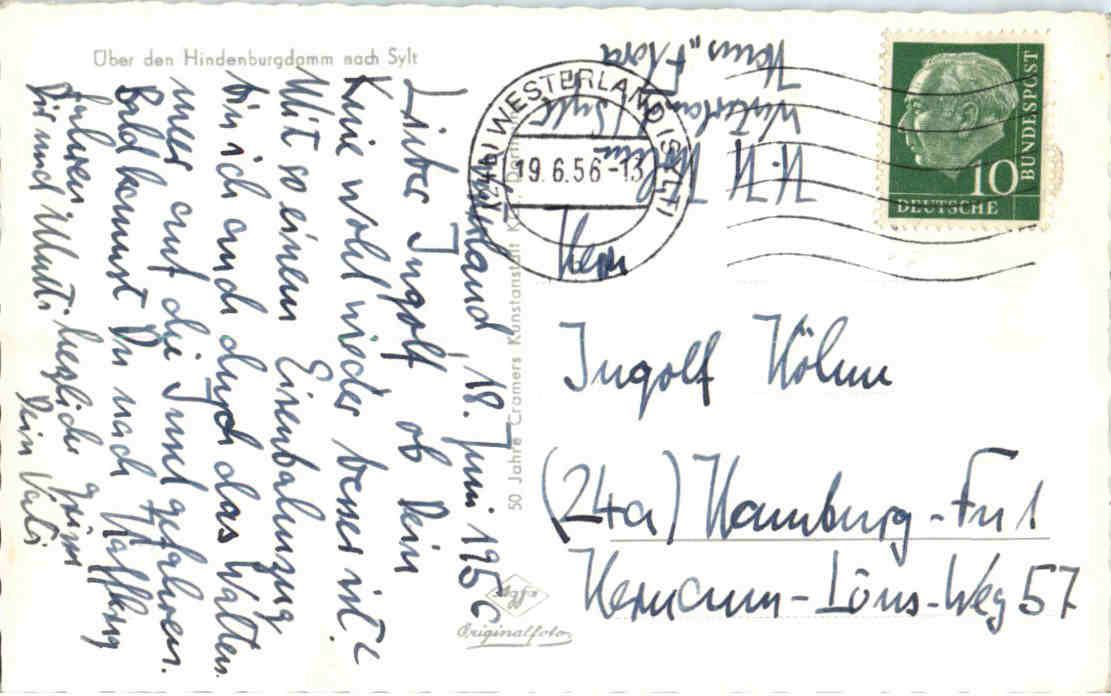 Über den Hindenburgdamm nach Sylt
Westerland, 18. Juni 1956
Lieber Ingolf, ob Dein
Knie wohl wieder besser ist?
Mit so einem Eisenbahnzug
bin ich auch durch das Watten
meer auf die Insel gefahren.
Bald kommst Du nach
fahren.
Dir und Mutti herzliche Grüße
Dein Vati
50 Jahre Cramers Kunstanstalt KG., Dortmund
Agfa
Originalfoto
(24b) WESTERLAND (SYLT)
19.6.56-13
10
DEUTSCHE
BUNDESPOST
Westerland / Sylt
Haus "Flora"
Herr
Ingolf Höhne
(24a) Hamburg-Fu 1
Hermann-Löns-Weg 57